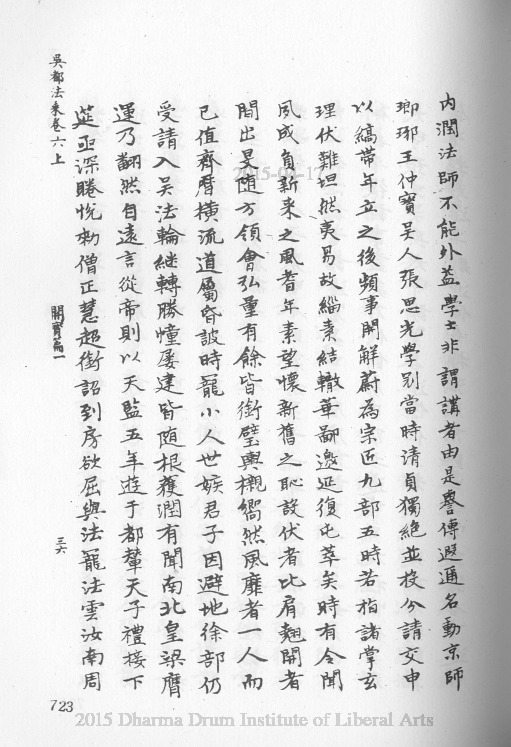 內潤法師不能外益學士非謂講者由是譽傳遐邇名動京師
瑯琊王仲寶吳人張思光學別當時清貞獨絕並投分請交申
以縞帶年立之後頻事開解蔚為宗匠九部五時若指諸掌玄
理伏難坦然夷易故緇素結轍華鄙邀延復屯萃矣時有令聞
夙成負新來之風耆年素望懷新舊之恥設伏者比肩翹開者
間出旻隨方領會弘量有餘皆銜璧輿櫬嚮然風靡者一人而
已值齊曆橫流道屬昏詖時寵小人世嫉君子因避地徐部仍
受請入吳法輪繼轉勝幢屢建皆隨根獲潤有聞南北皇梁膺
運乃翻然自遠言從帝則以天監五年遊于都輦天子禮接下
筵亟深睠悅勑僧正慧超銜詔到房欲屈與法寵法雲汝南周
吳都法乘卷六上
開寶篇一
三六
723
2015-09-17
2015 Dharma Drum Institute of Liberal Arts